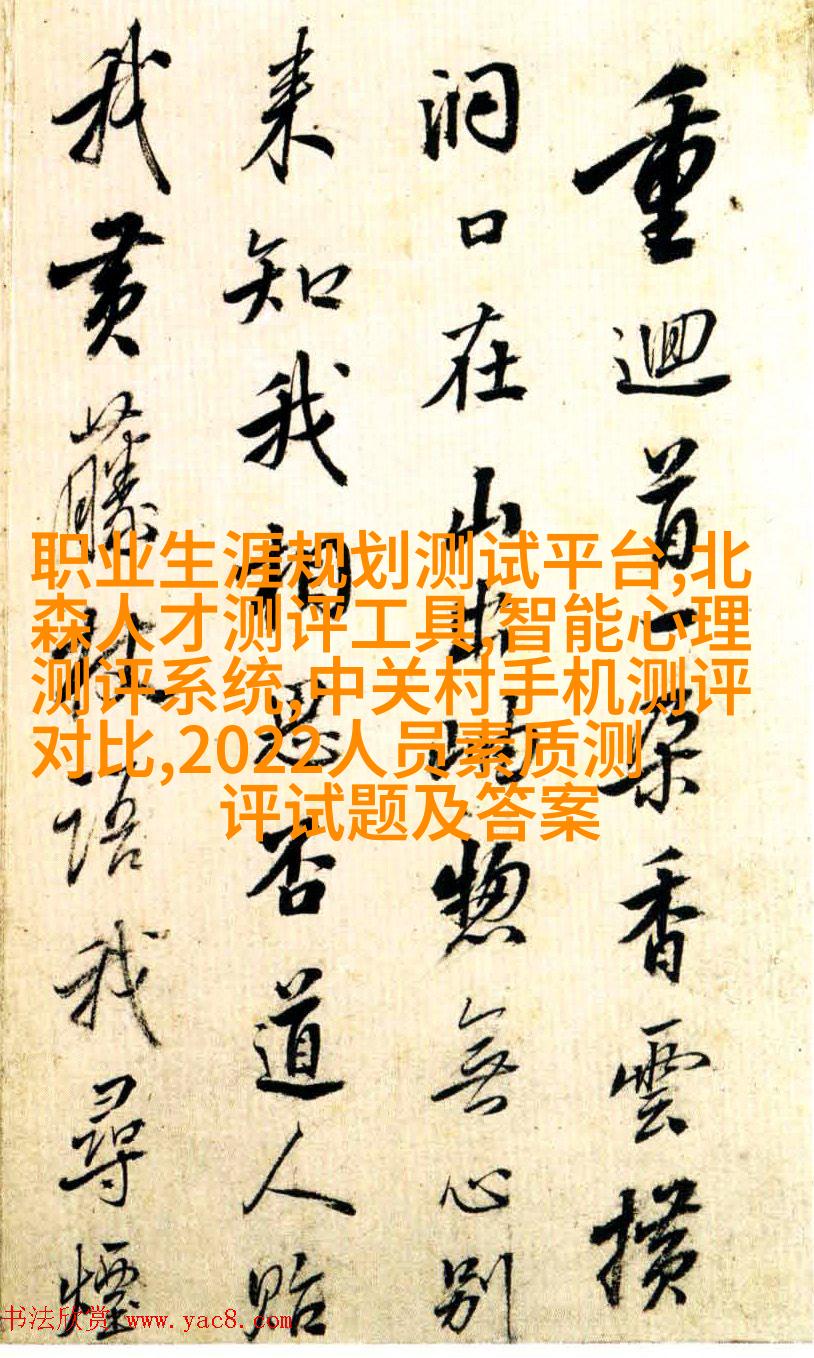 重迴首一朵香雲横
洞口在山出山惣無心别
来知我相思否道人貽
我黄藤杖语我尋煙
职业生涯规划测试平台,北
森人才测评工具,智能心理
测评系统,中关村手机测评
对比,2022人员素质测
评试题及答案
书法欣赏 www.yac8.com